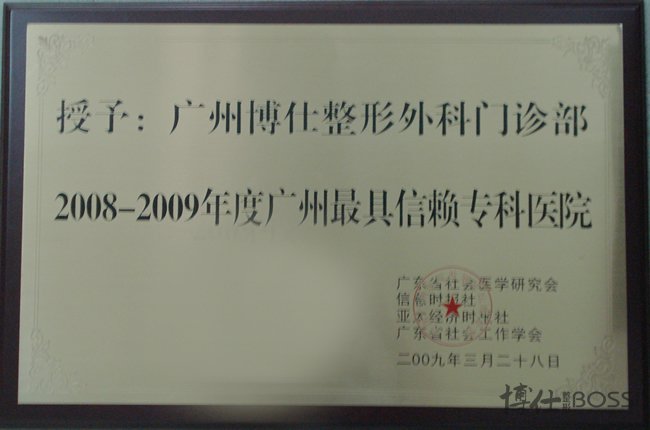 授予：广州博仕整形外科门诊部
2008-2009年度广州最具信赖专科医院
广东省社会医学研究会
信息时报社
亚太经济时报社
广东省社会工作学会
二00九年三月二十八日
博仕整形BOSS